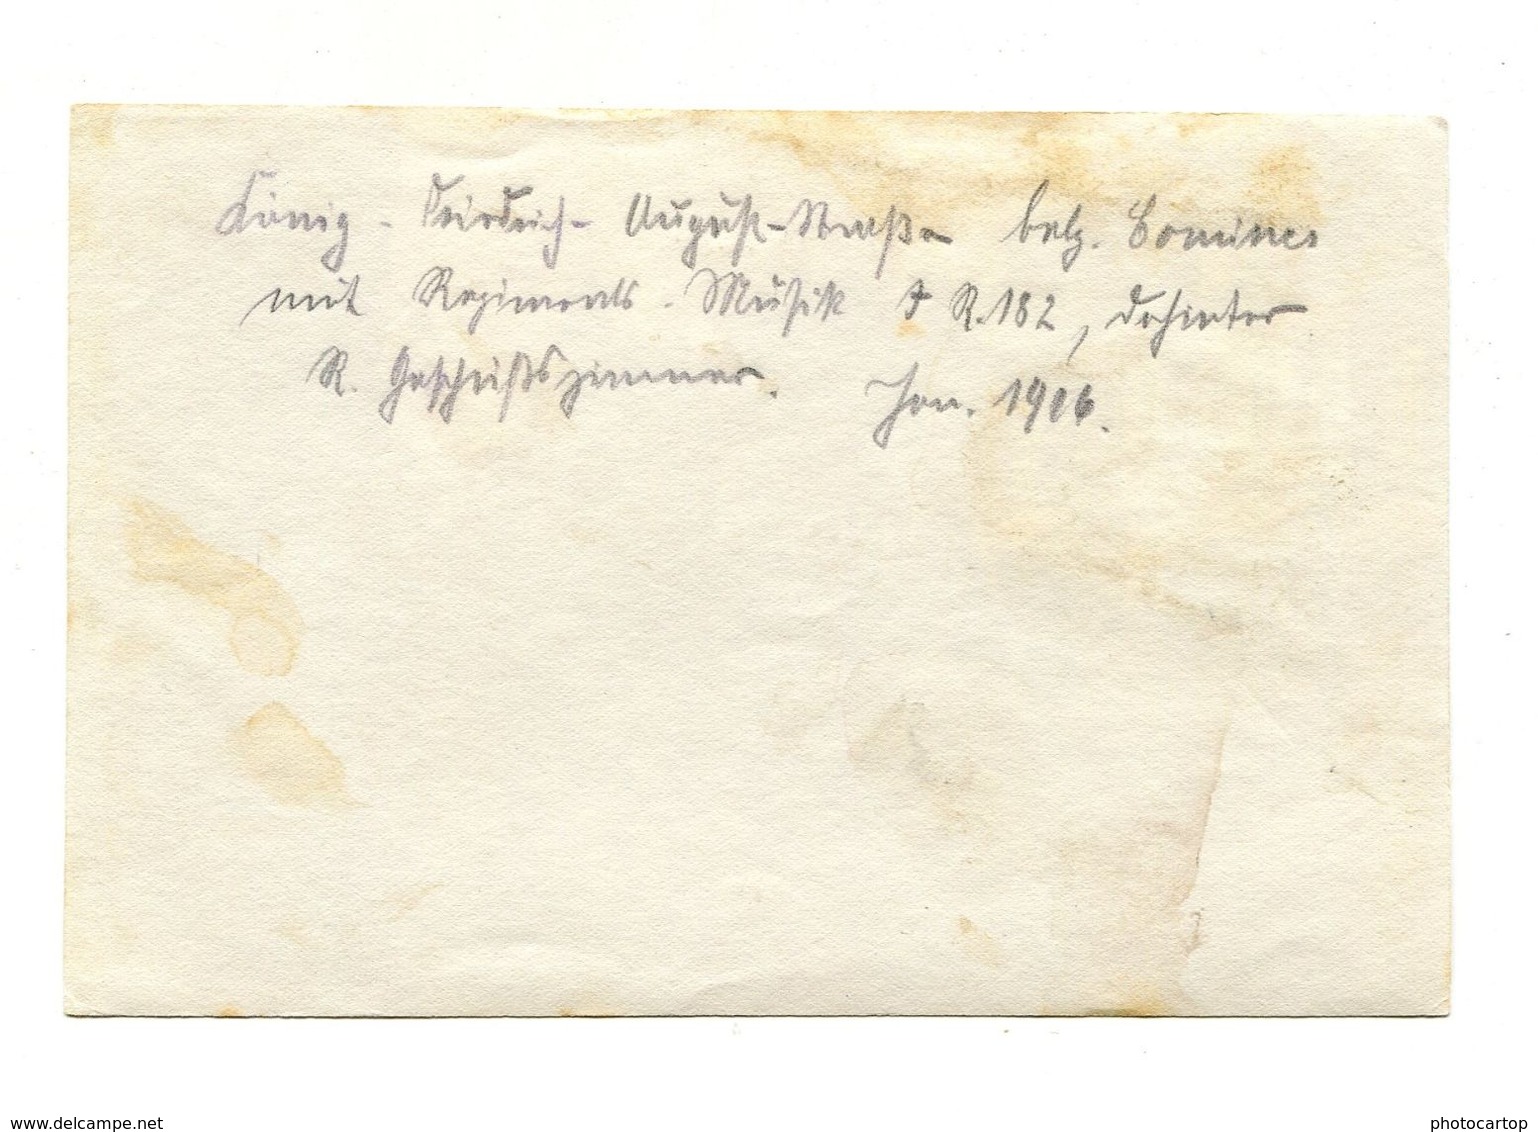 König-Friedrich-August-Straße belg. Comines
mit Regiments-Musik J R. 182, dahinter
R. Geschäftszimmer. Jan. 1916.
www.delcampe.net
photocartop